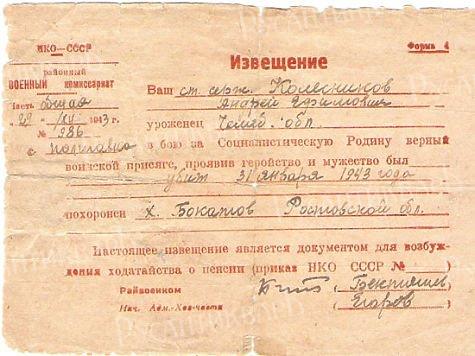 НКО—СССР
Форма 4
районный
ВОЕННЫЙ комиссариат
Часть общая
"29" XII 1943 г.
№ 986
с. Полтавка
Извещение
Ваш ст. серж. Колесников
Андрей Ефимович
уроженец Челяб. обл.
в бою за Социалистическую Родину верный
воинской присяге, проявив геройство и мужество был
убит 31 января 1943 года
похоронен х. Бокатов Ростовской обл.
Настоящее извещение является документом для возбуж-
дения ходатайства о пенсии (приказ НКО СССР № )
Райвоенком
Нач. Адм.-Хоз-части
Егоров